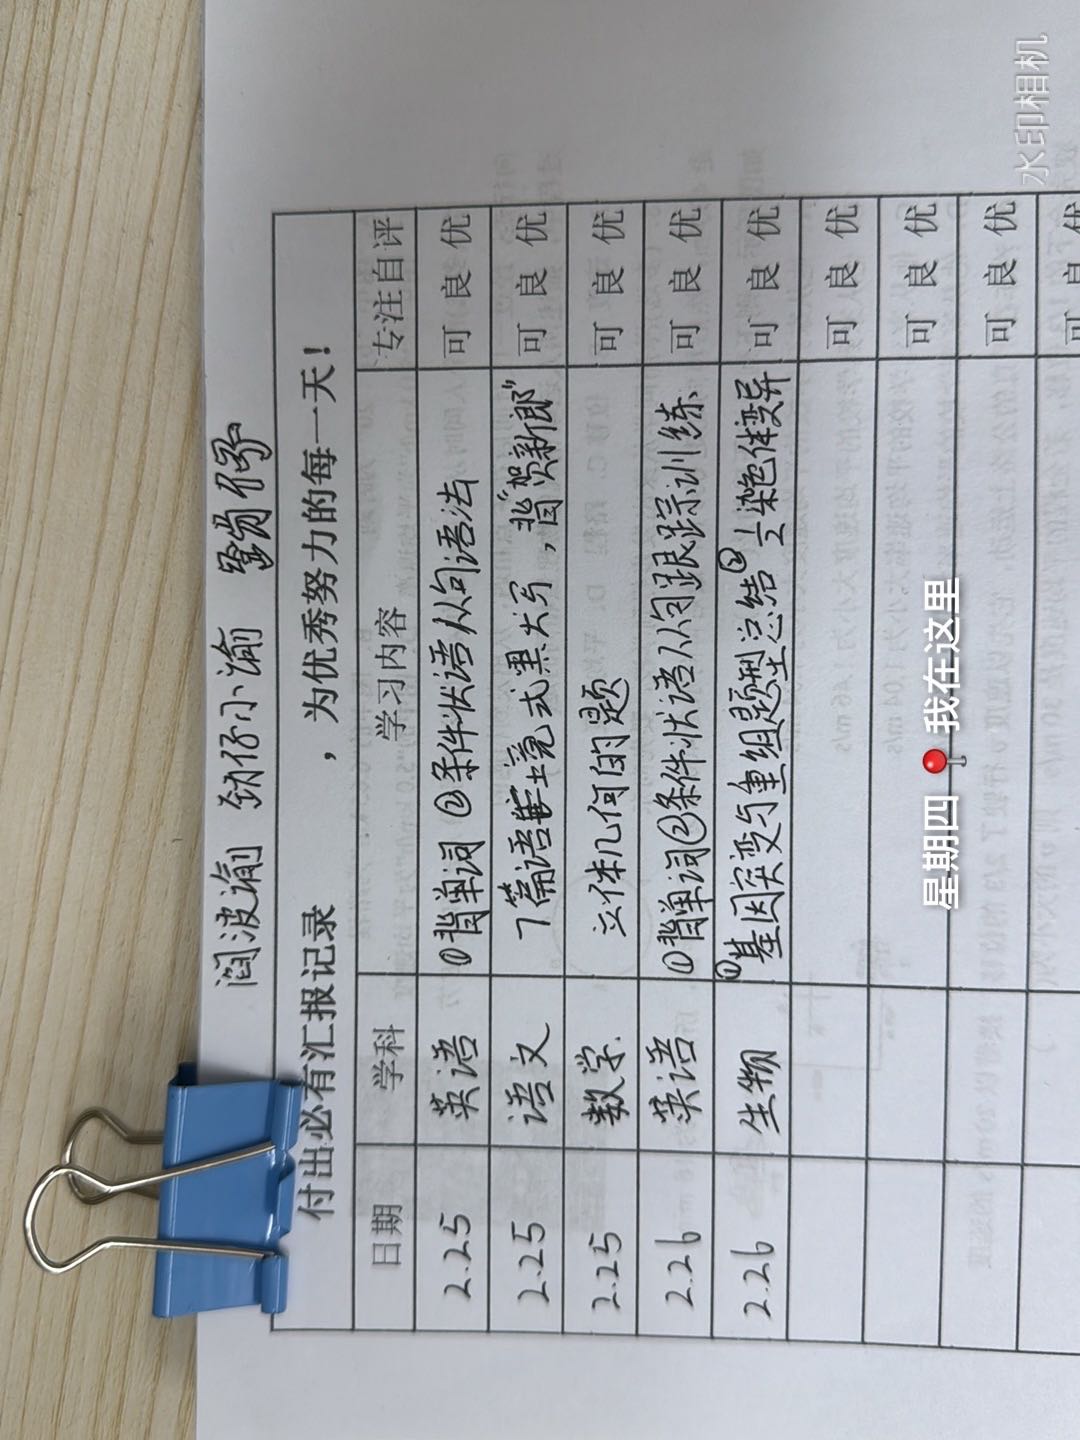 阎波瑜 劲仔小瑜
付出必有汇报记录 ，为优秀努力的每一天！
日期 学科 学习内容 专注自评
2.25 英语 ①背单词 ②条件状语从句语法 可 良 优
2.25 语文 7篇语境式默大写，背“贺新郎” 可 良 优
2.25 数学 立体几何的题 可 良 优
2.26 英语 ①背单词②条件状语从句跟踪训练 可 良 优
2.26 生物 ①基因突变与重组题型总结 ② 染色体变异 可 良 优
可 良 优
可 良 优
可 良 优
可 良 优
星期四 我在这里
水印相机